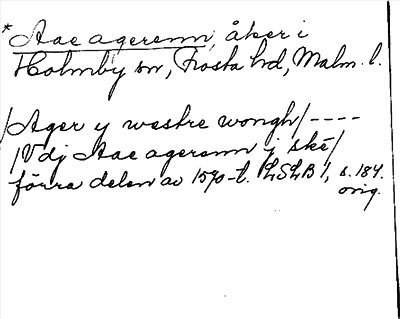 *Aae agerenn, åker i
Holmby sn, Frosta hd, Malm. l.
/Ager y westre wongh/----
/Vdj Aae agerenn j ské/
förra delen av 1590-t. LSLB 1, s. 184.
orig.